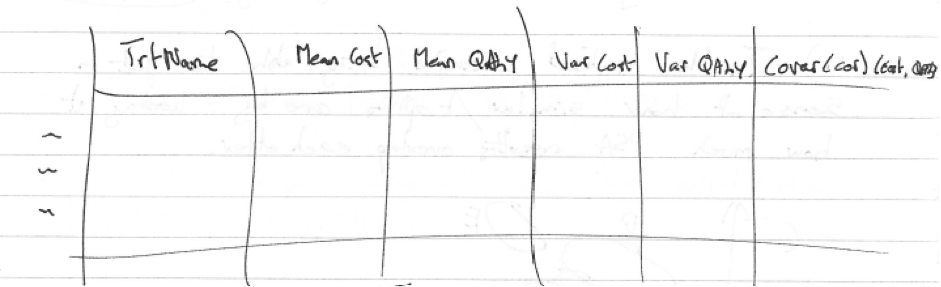 TrtName Mean Cost Mean QALY Var Cost Var QALY Covar(cor) (cost, QALY)
~
~
~